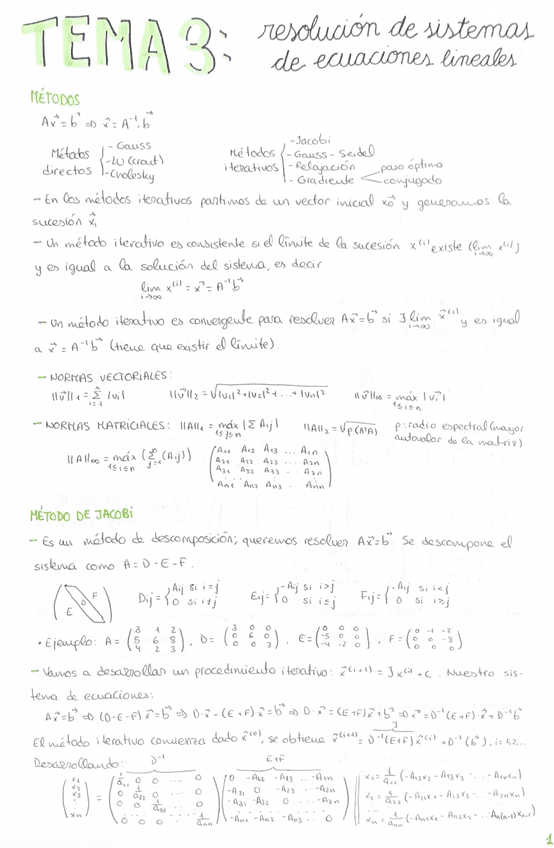 TEMA 3: resolución de sistemas
de ecuaciones lineales
MÉTODOS
Ax⃗ = b⃗ ⇒ x⃗ = A⁻¹·b⃗
Métodos directos { - Gauss - LU (Crout) - Cholesky
Métodos iterativos { - Jacobi - Gauss-Seidel - Relajación - Gradiente < paso óptimo conjugado
- En los métodos iterativos partimos de un vector inicial x⃗0 y generamos la
sucesión x⃗i
- Un método iterativo es consistente si el límite de la sucesión x⁽ⁱ⁾ existe (lim i→∞ x⁽ⁱ⁾)
y es igual a la solución del sistema, es decir
lim i→∞ x⁽ⁱ⁾ = x⃗ = A⁻¹b⃗
- Un método iterativo es convergente para resolver Ax⃗=b⃗ si ∃ lim i→∞ x⃗⁽ⁱ⁾ y es igual
a x⃗ = A⁻¹b⃗ (tiene que existir el límite).
- NORMAS VECTORIALES:
||v⃗||₁ = Σ i=1 n |vi| ||v⃗||₂ = √|v1|²+|v2|²+...+|vn|² ||v⃗||∞ = máx 1≤i≤n |vi|
- NORMAS MATRICIALES: ||A||₁ = máx 1≤j≤n |Σ Aij| ||A||₂ = √ρ(AᵗA) ρ: radio espectral (mayor
autovalor de la matriz)
||A||∞ = máx 1≤i≤n (Σ j=1 n (Aij)) (A11 A12 A13 ... A1n
A21 A22 A23 ... A2n
A31 A32 A33 ... A3n
An1 An2 An3 ... Ann)
MÉTODO DE JACOBI
- Es un método de descomposición; queremos resolver Ax⃗=b⃗. Se descompone el
sistema como A = D - E - F.
E D F Dij = { Aij si i=j 0 si i≠j Eij = { -Aij si i>j 0 si i≤j Fij = { -Aij si i<j 0 si i≥j
• Ejemplo: A = (3 1 2 5 6 8 4 2 3), D = (3 0 0 0 6 0 0 0 3), E = (0 0 0 -5 0 0 -4 -2 0), F = (0 -1 -2 0 0 -8 0 0 0)
- Vamos a desarrollar un procedimiento iterativo: x⃗⁽ⁱ⁺¹⁾ = Jx⁽ⁱ⁾ + c. Nuestro sis-
tema de ecuaciones:
Ax⃗=b⃗ ⇒ (D-E-F)x⃗=b⃗ ⇒ D·x⃗-(E+F)x⃗=b⃗ ⇒ D·x⃗=(E+F)x⃗+b⃗ ⇒ x⃗=D⁻¹(E+F)·x⃗+D⁻¹b⃗
El método iterativo comienza dado x⃗⁽⁰⁾, se obtiene x⃗⁽ⁱ⁺¹⁾ = D⁻¹(E+F)x⃗⁽ⁱ⁾ + D⁻¹(b⃗), i=1,2,...
J
Desarrollando: D⁻¹ E+F
(x1 x2 x3 ⋮ xn) = (1/a11 0 0 ... 0
0 1/a22 0 ... 0
0 0 1/a33 ... 0
0 0 0 ... 1/ann)
(0 -A12 -A13 ... -A1n
-A21 0 -A23 ... -A2n
-A31 -A32 0 ... -A3n
-An1 -An2 -An3 ... 0)
x1 = 1/a11 (-A12x2 - A13x3 - ... - A1nxn)
x2 = 1/a22 (-A21x1 - A23x3 - ... - A2nxn)
xn = 1/ann (-An1x1 - An2x2 - ... An(n-1)xn-1)
1